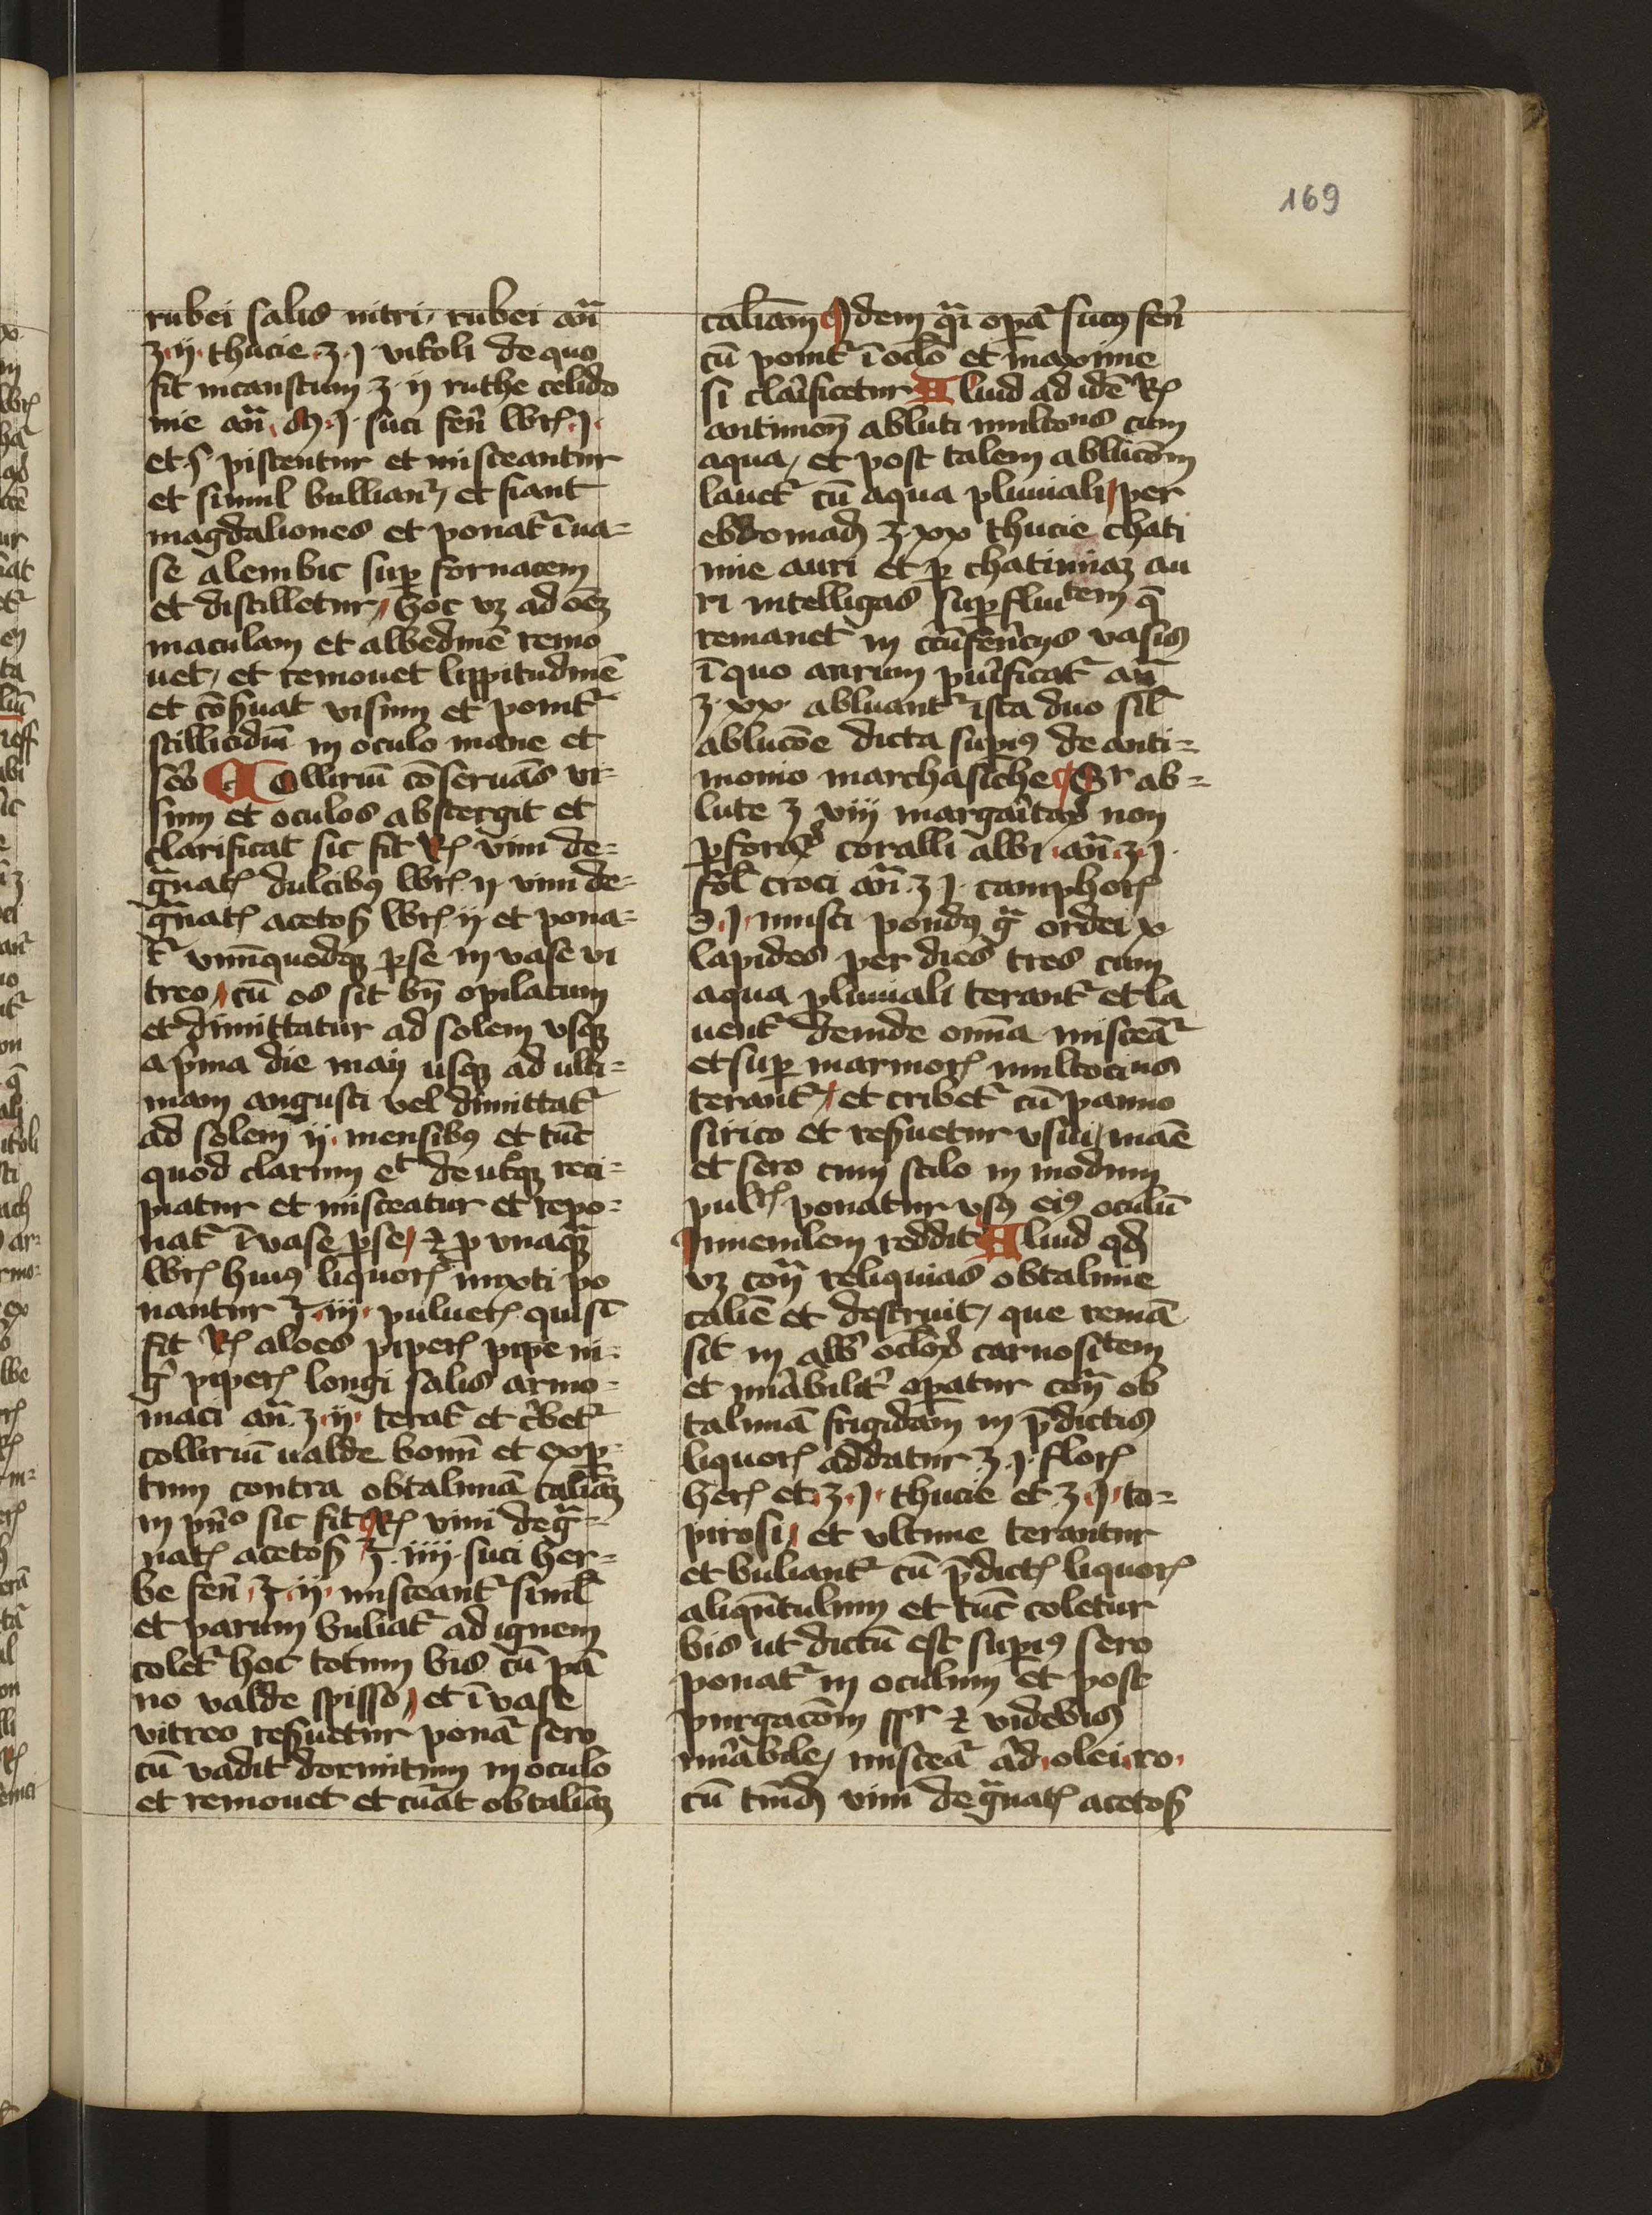 169
rubei salis nitri, rubei an̄
ʒ·ij· thucie ʒ·j· vitoli de quo
fit incaustum ʒ·ij ruthe celido
nie an̄ ·j· suci fen̄ j·
et pistentur et misceantur
et simul bulliant᷑, et fiant
magdaliones et ponat᷑ ī ua=
se alembic sup fornacem
et distilletur, hoc vꝫ ad oēꝫ
maculam et albedinē remo
uet, et remouet lippitudinē
et cōẜuat visum et ponit᷑
stillicidiū in oculo mane et
ẜo Collirium cōseruās vi=
sum et oculos abstergit et
clarificat sic fit R vini de=
gᷓnatꝭ dulcibꝰ ij vini de=
gᷓnatꝭ acetoẜ ij et pona=
t᷑ vnūquodqꝫ ꝑ se in vase vi
treo, cū os sit bn̄ opilatum
et dimittatur ad solem vsqꝫ
a pͥma die maij usqꝫ ad ulti=
mam augusti vel dimittat᷑
ad solem ij· mensibꝰ et tūc
quod clarum et de utqꝫ reci=
piatur et misceatur et repo=
nat᷑ ī vase ꝑ se, ⁊ ꝓ vnaqᷓꝫ
huiꝰ liquorꝭ mixti po
nantur ℥·iij· puluerꝭ qui sic
fit R aloes piperꝭ pipe ni=
gͥ piperꝭ longi salis armo=
niaci an̄ ʒ·ij· terat᷑ et cͥbet᷑
collirium ualde bonū et exꝑ=
tum contra obtalmiā caliā
in pͥnͦ sic fit R vini degᷓ=
natꝭ acetoẜ ℥·iiij· suci her=
be fen̄ ℥·ij· misceant᷑ siml̄
et parum buliat᷑ ad ignem
colet᷑ hoc totum bis cū pā
no valde spisso, et ī vase
vitreo reẜuetur ponat᷑ sero
cū vadit dormitum in oculo
et remouet et cͣuat obtaliā
caliam Idem qᷓi opat᷑ sucꝰ fen̄
cū ponit᷑ ī oclō et maxime
si clarͥficetur Aliud ad idē R
antimon̄ abluti multons cum
aqua, et post talem ablucōm
lauet᷑ cū aqua pluuiali, per
ebdomad ʒ·xx thucie chati
mie auri et ꝑ chatimiaꝫ au
ri intelligas supfluitem q̄
remanet in vasis
ī quo aurum purͥficat᷑ an̄
ʒ·xx· abluant᷑ ista duo sil̄
ablucōe dicta supiꝰ de anti=
monio marchasiche ab=
lute ʒ viij margaͥtaꝝ non
ꝑforaꝝ coralli albi an̄ ʒ·j·
fol̄ croci an̄ ʒ j· camphorꝭ
℈·j· musci pondꝰ gᷓ ordei x
lapides per dies tres cum
aqua pluuiali terant᷑ et la
uent᷑ deinde omīa misceāt᷑
et sup marmorꝭ multociens
terant᷑, et cribet᷑ cū panno
sirico et reẜuetur vsui, māe
et sero cum stilo in modum
pulꝭ ponatur vsꝰ eiꝰ oculū
iuuenilem reddit Aliud qd
vꝫ cont᷑ reliquias obtalmie
calie et destruit, que remā
sit in alb oclōꝝ carnositem
et miͬabilit᷑ opatur cont᷑ ob
talmiā frigidam in p̄dictis
liquorꝭ addatur ʒ·j· florꝭ
herꝭ et ʒ·j· thucie et ʒ·j· to=
pirosi, et ultime terantur
et buliant᷑ cū p̄dictꝭ liquorꝭ
aliqᷓntulum et tūc coletur
bis ut dictū est supiꝰ sero
ponat᷑ in oculum et post
purgacōm ⁊ videbis
miͬabile, misceat᷑ ad olei ro
cū tm̄d vini degᷓnatꝭ acetoẜ